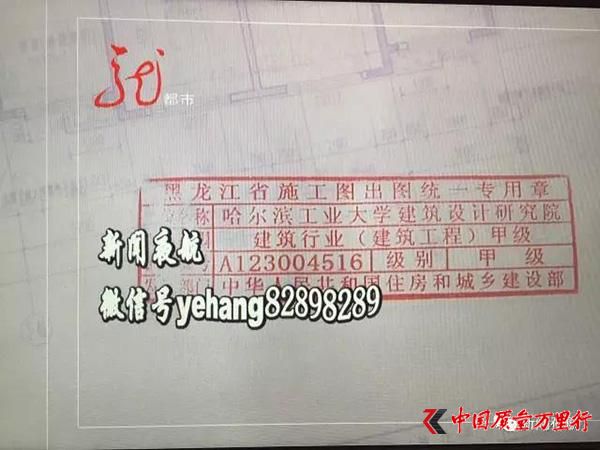 都市
黑龙江省施工图出图统一专用章
名称 哈尔滨工业大学建筑设计研究院
建筑行业（建筑工程）甲级
A123004516 级别 甲级
部门 中华人民共和国住房和城乡建设部
新闻夜航
微信号yehang82898289
中国质量万里行